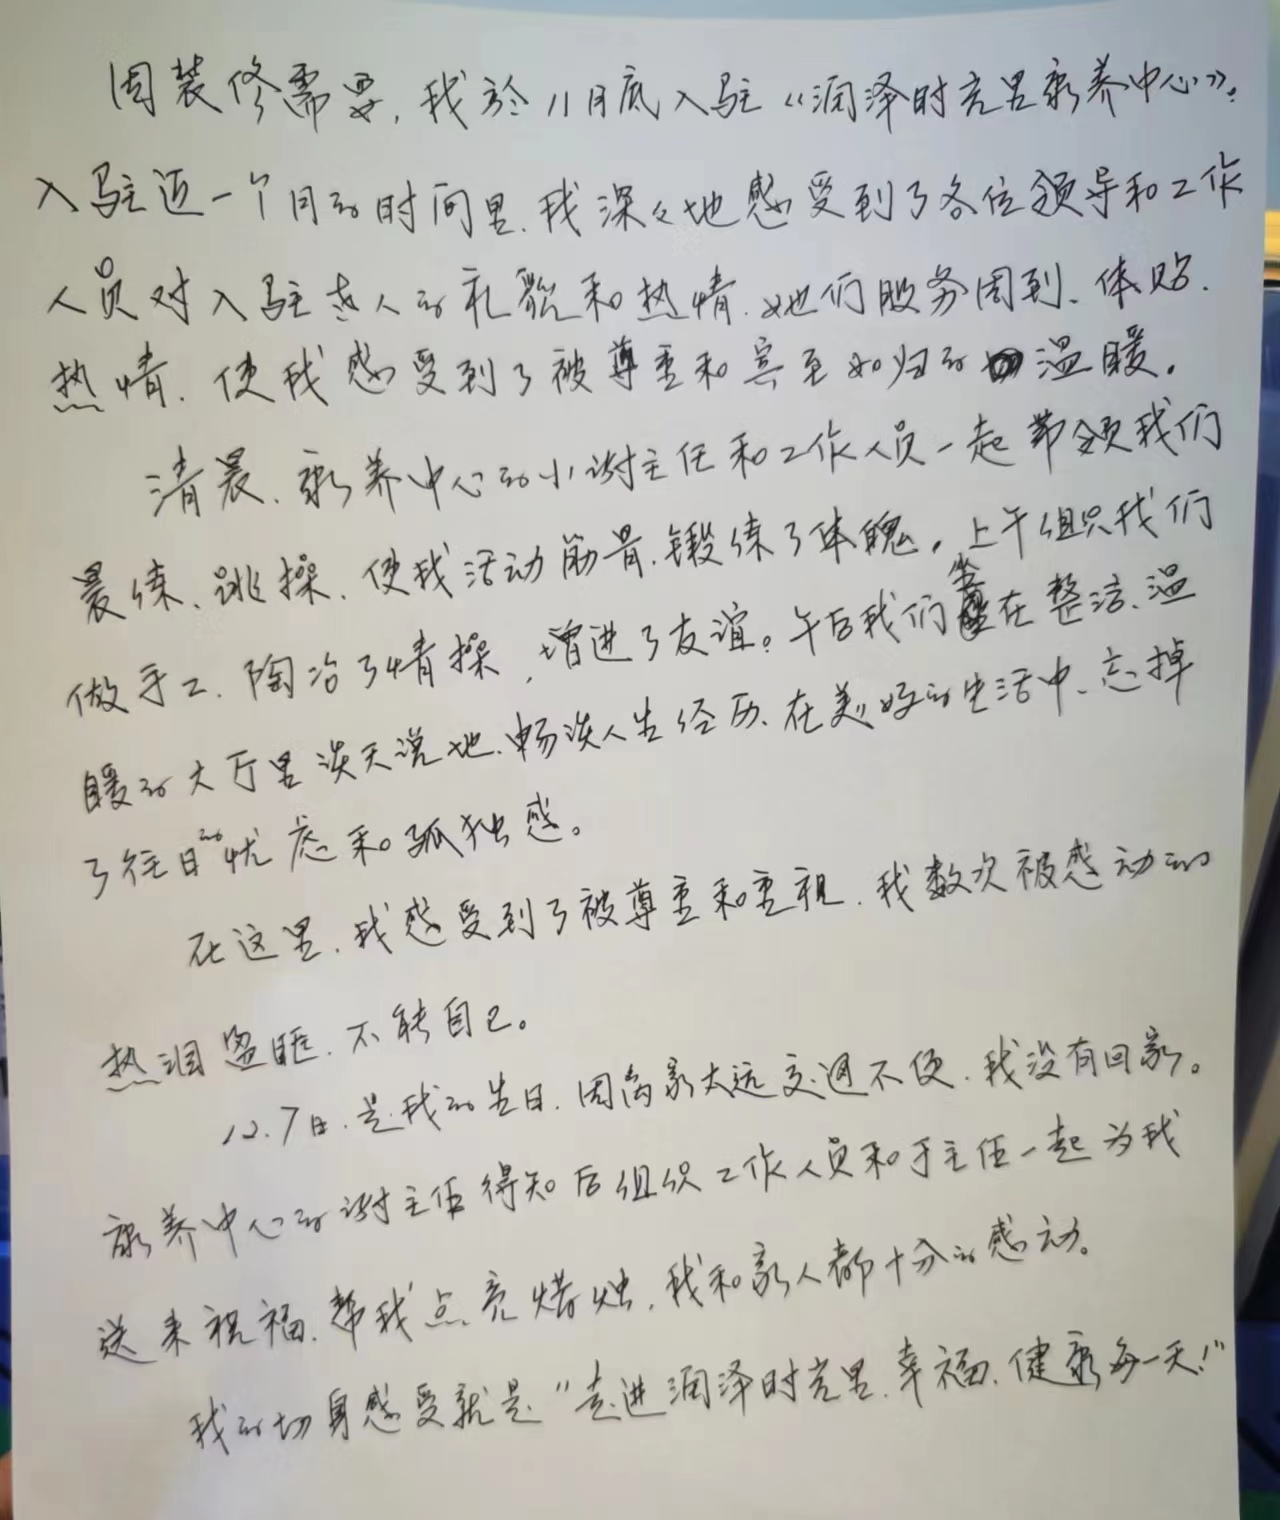 因装修需要,我於11月底入驻《润泽时光里康养中心》。
入驻近一个月的时间里,我深々地感受到了各位领导和工作
人员对入驻老人的礼貌和热情,她们服务周到、体贴、
热情,使我感受到了被尊重和宾至如归的温暖。
清晨,康养中心的小谢主任和工作人员一起带领我们
晨练、跳操,使我活动筋骨,锻练了体魄。上午组织我们
做手工,陶冶了情操,增进了友谊。午后我们坐在整洁、温
暖的大厅里谈天说地,畅谈人生经历,在美好的生活中,忘掉
了往日的忧虑和孤独感。
在这里,我感受到了被尊重和重视,我数次被感动的
热泪盈眶,不能自已。
12.7日,是我的生日,因离家太远交通不便,我没有回家。
康养中心的谢主任得知后组织工作人员和于主任一起为我
送来祝福,帮我点亮烛,我和家人都十分的感动。
我的切身感受就是“走进润泽时光里,幸福、健康每一天!”